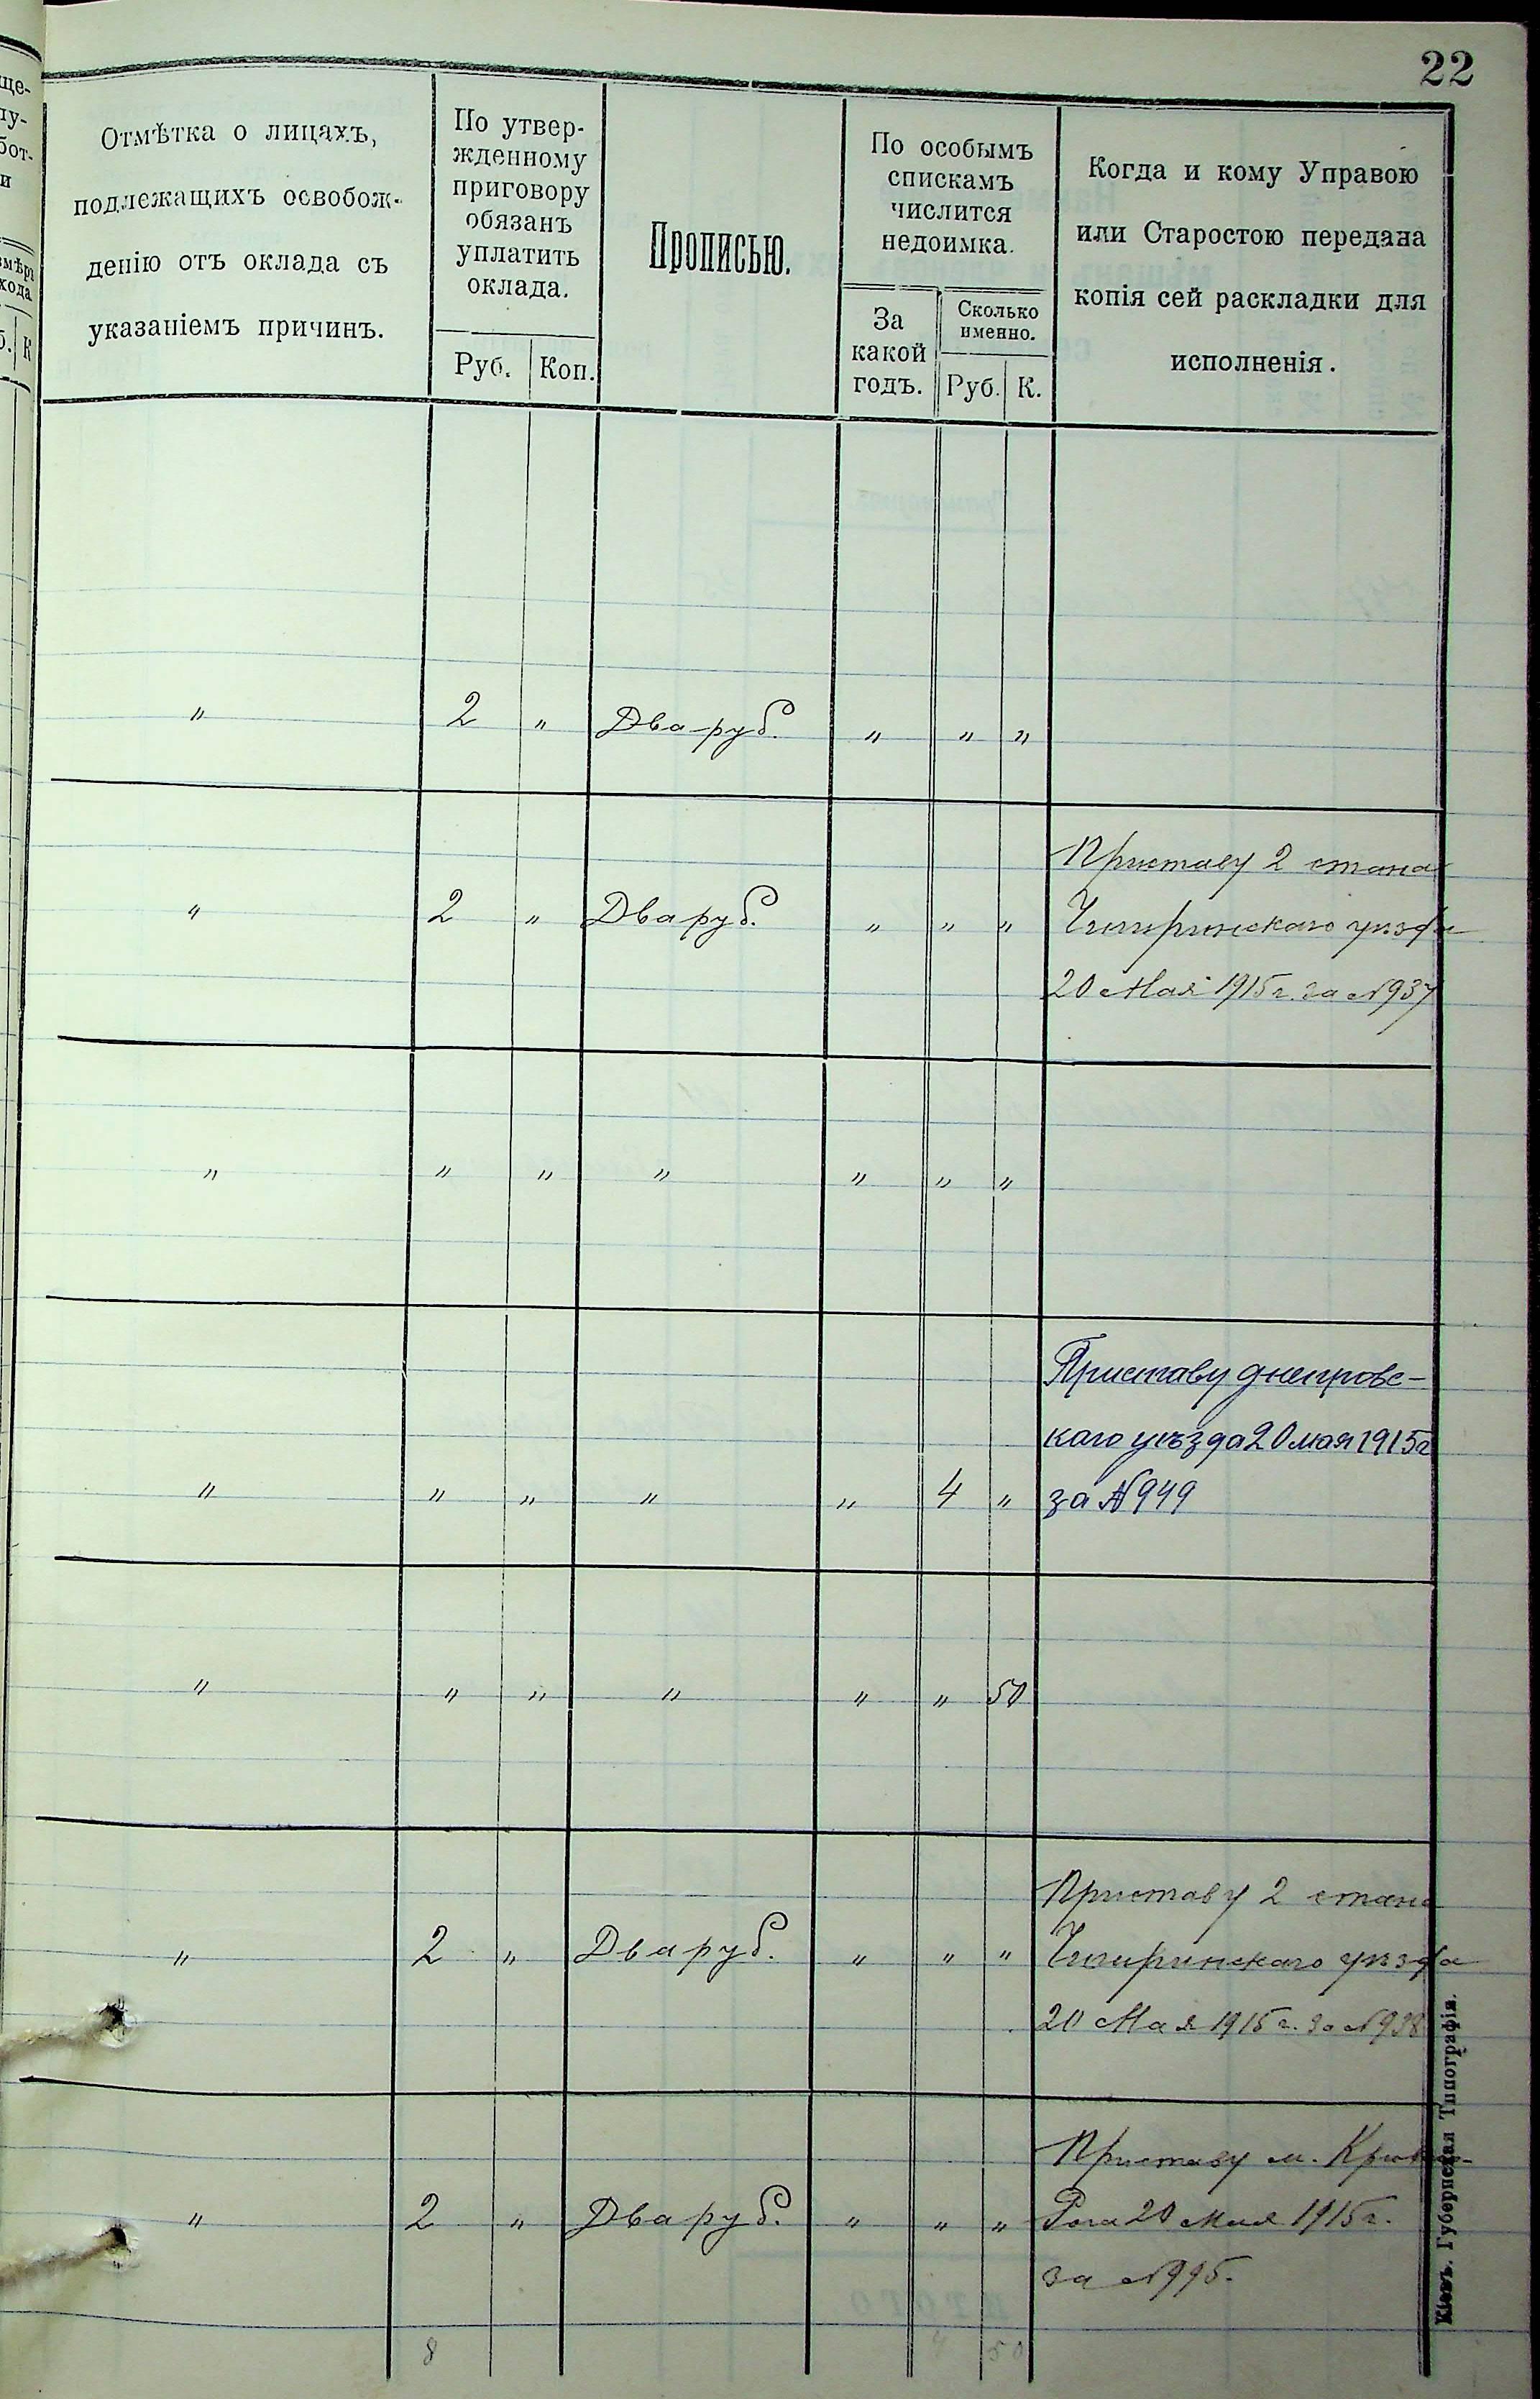 22
ще-
лу-
бот-
и
змѣръ
хода
б. К
Отмѣтка о лицахъ,
подлежащихъ освобож-
денію отъ оклада съ
указаніемъ причинъ.
По утвер-
жденному
приговору
обязанъ
уплатить
оклада.
Руб. Коп.
Прописью.
По особымъ
спискамъ
числится
недоимка.
За
какой
годъ.
Сколько
именно.
Руб. К.
Когда и кому Управою
или Старостою передана
копія сей раскладки для
исполненія.
" 2 " Два руб. " " "
Приставу 2 стана
" 2 " Два руб. " " " Чигиринскаго уѣзда
20 Мая 1915 г. за №937
" " " " " " "
Приставу днепровс-
каго уѣзда 20 мая 1915 г
" " " " " 4 " за №949
" " " " " " 50
Приставу 2 стана
" 2 " Два руб. " " " Чигиринскаго уѣзда
20 Мая 1915 г. за №938
Приставу м.
" 2 " Два руб. " " " Рога 20 мая 1915 г.
за №995.
8 4 50
Кіевъ. Губернская Типографія.